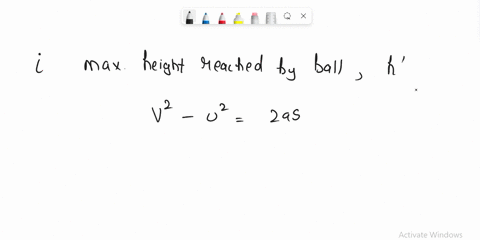 i max. height reached by ball, h'
V² - U² = 2as
Activate Windows